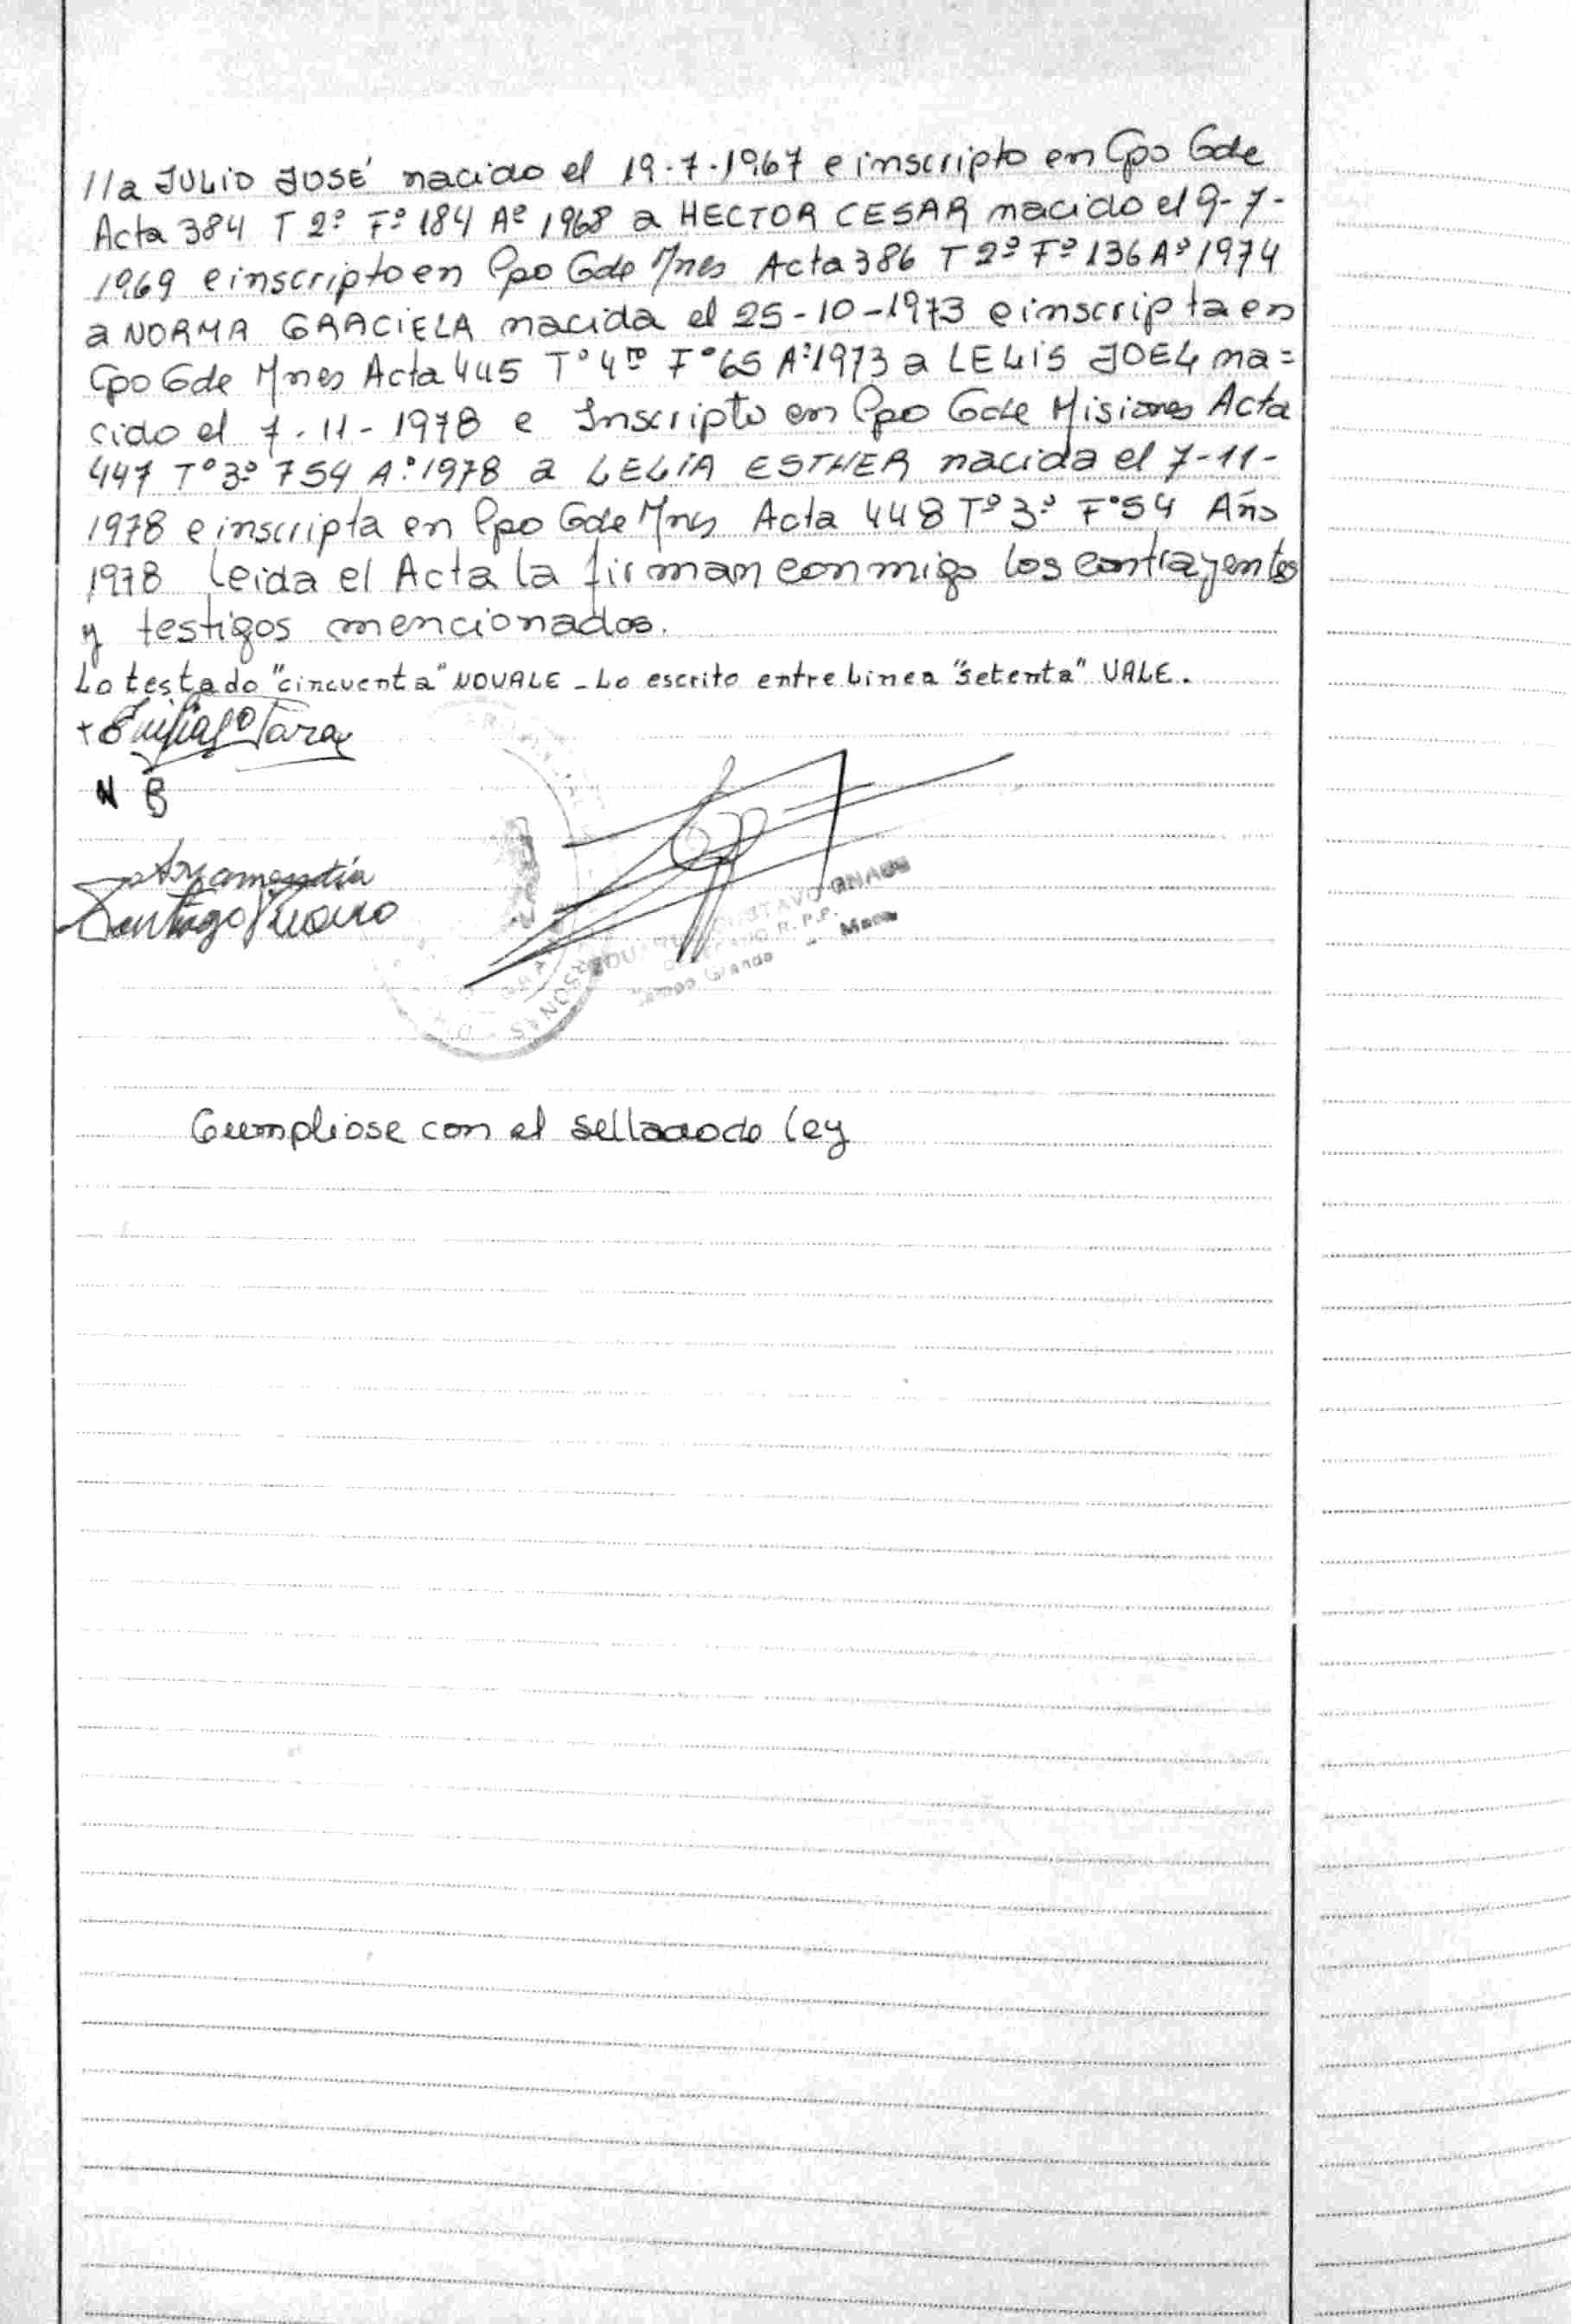 //a JULIO JOSÉ nacido el 19-7-1967 e inscripto en Cpo Gde
Acta 384 T 2º Fº 184 Aº 1968 a HECTOR CESAR nacido el 9-7-
1969 e inscripto en Cpo Gde Mnes Acta 386 T 2º Fº 136 Aº 1974
a NORMA GRACIELA nacida el 25-10-1973 e inscripta en
Cpo Gde Mnes Acta 445 Tº 4to Fº 65 Aº 1973 a LELIS JOEL na=
cido el 7-11-1978 e Inscripto en Cpo Gde Misiones Acta
447 Tº 3º F54 Aº 1978 a LELIA ESTHER nacida el 7-11-
1978 e inscripta en Cpo Gde Mnes Acta 448 Tº 3º Fº 54 Año
1978 Leida el Acta la firman conmigo los contrayentes
y testigos mencionados.
Lo testado "cincuenta" NO VALE - Lo escrito entre Linea "Setenta" VALE.
N B
Santiago
GUSTAVO
R.P.P.
Campo Grande - Mnes
Cumpliose con el sellado de ley